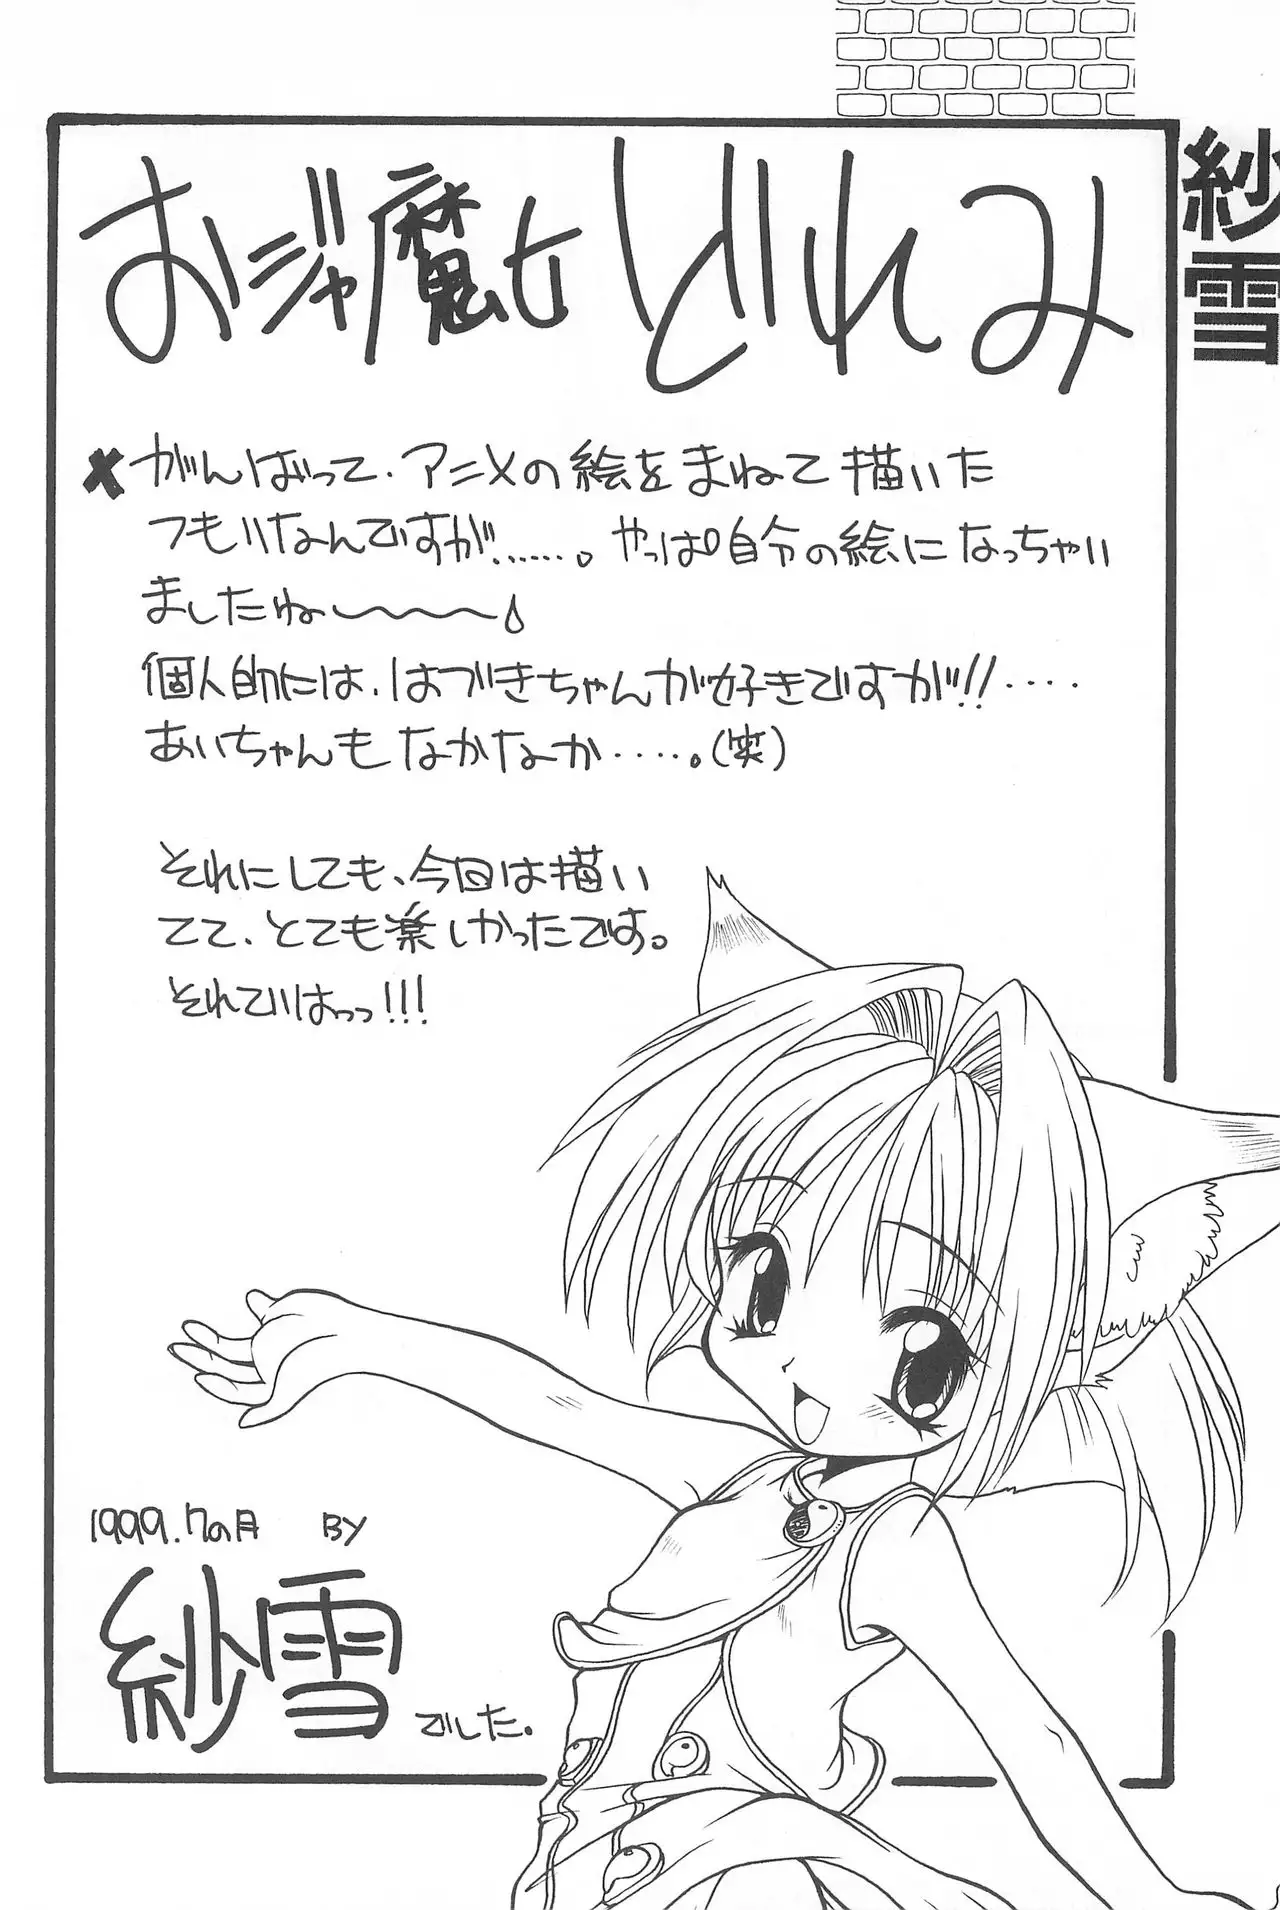 おジャ魔女どれみ
紗雪
×がんばって、アニメの絵をまねて描いた
つもりなんですが……。やっぱ自分の絵になっちゃい
ましたね〜〜〜
個人的には、はづきちゃんが好きですが!!‥‥
あいちゃんもなかなか‥‥。(笑)
それにしても、今回は描い
てて、とても楽しかったです。
それではっっ!!!
1999.7の月 BY
紗雪でした。